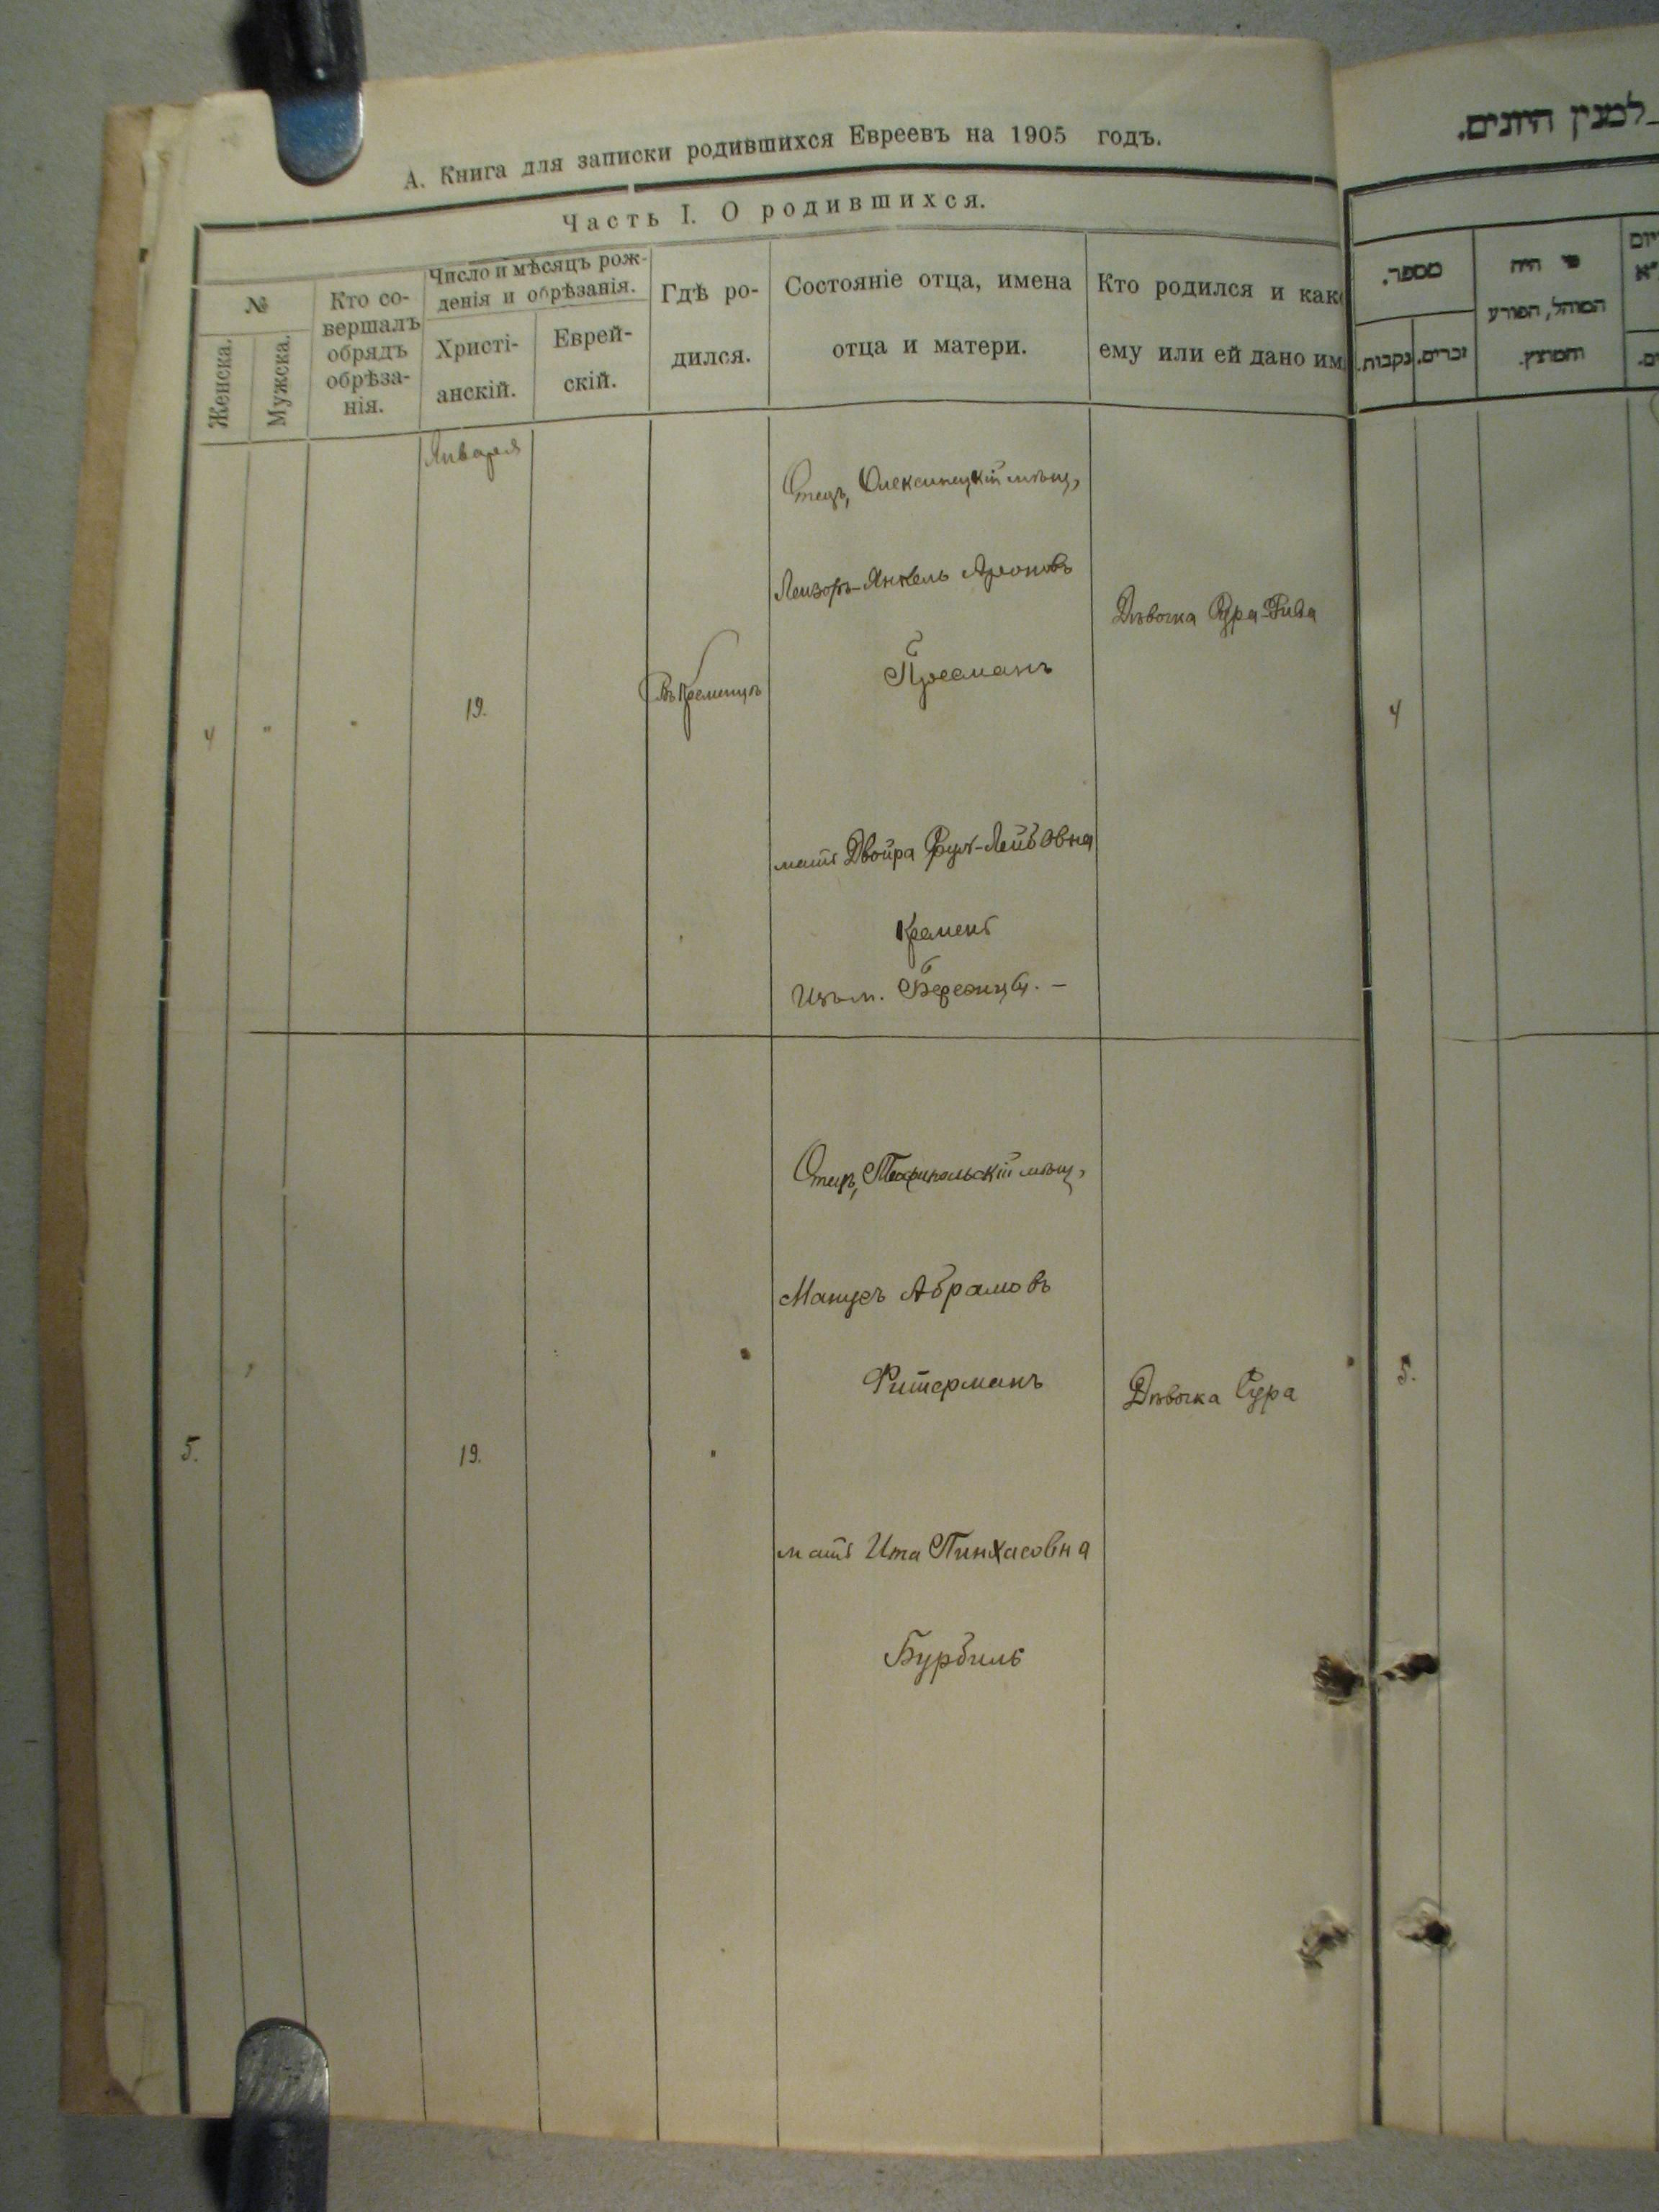 А. Книга для записки родившихся Евреевъ на 1905 годъ.
Часть I. О родившихся.
№
Женска.
Мужска.
Кто со-
вершалъ
обрядъ
обрѣза-
нія.
Число и мѣсяцъ рож-
денія и обрѣзанія.
Христі-
анскій.
Еврей-
скій.
Гдѣ ро-
дился.
Состояніе отца, имена
отца и матери.
Кто родился и како
ему или ей дано им
Января
4
"
19.
Въ Кременцѣ
Отецъ, Олексинецкій мѣщ,
Лейзоръ-Янкель Ароновъ
мать Двойра Срул-Лейбовна
Кремень
Изъ м.
Дѣвочка Сура-Рива
5.
19.
Отецъ, мѣщ,
Манусъ Абрамовъ
Фитерманъ
мать Ита Пинхасовна
Бурбиль
Дѣвочка Сура
למנין היונים.
מספר.
נקבות.
זכרים.
מי היה
המוהל, הפורע
והמוצץ.
4
5.